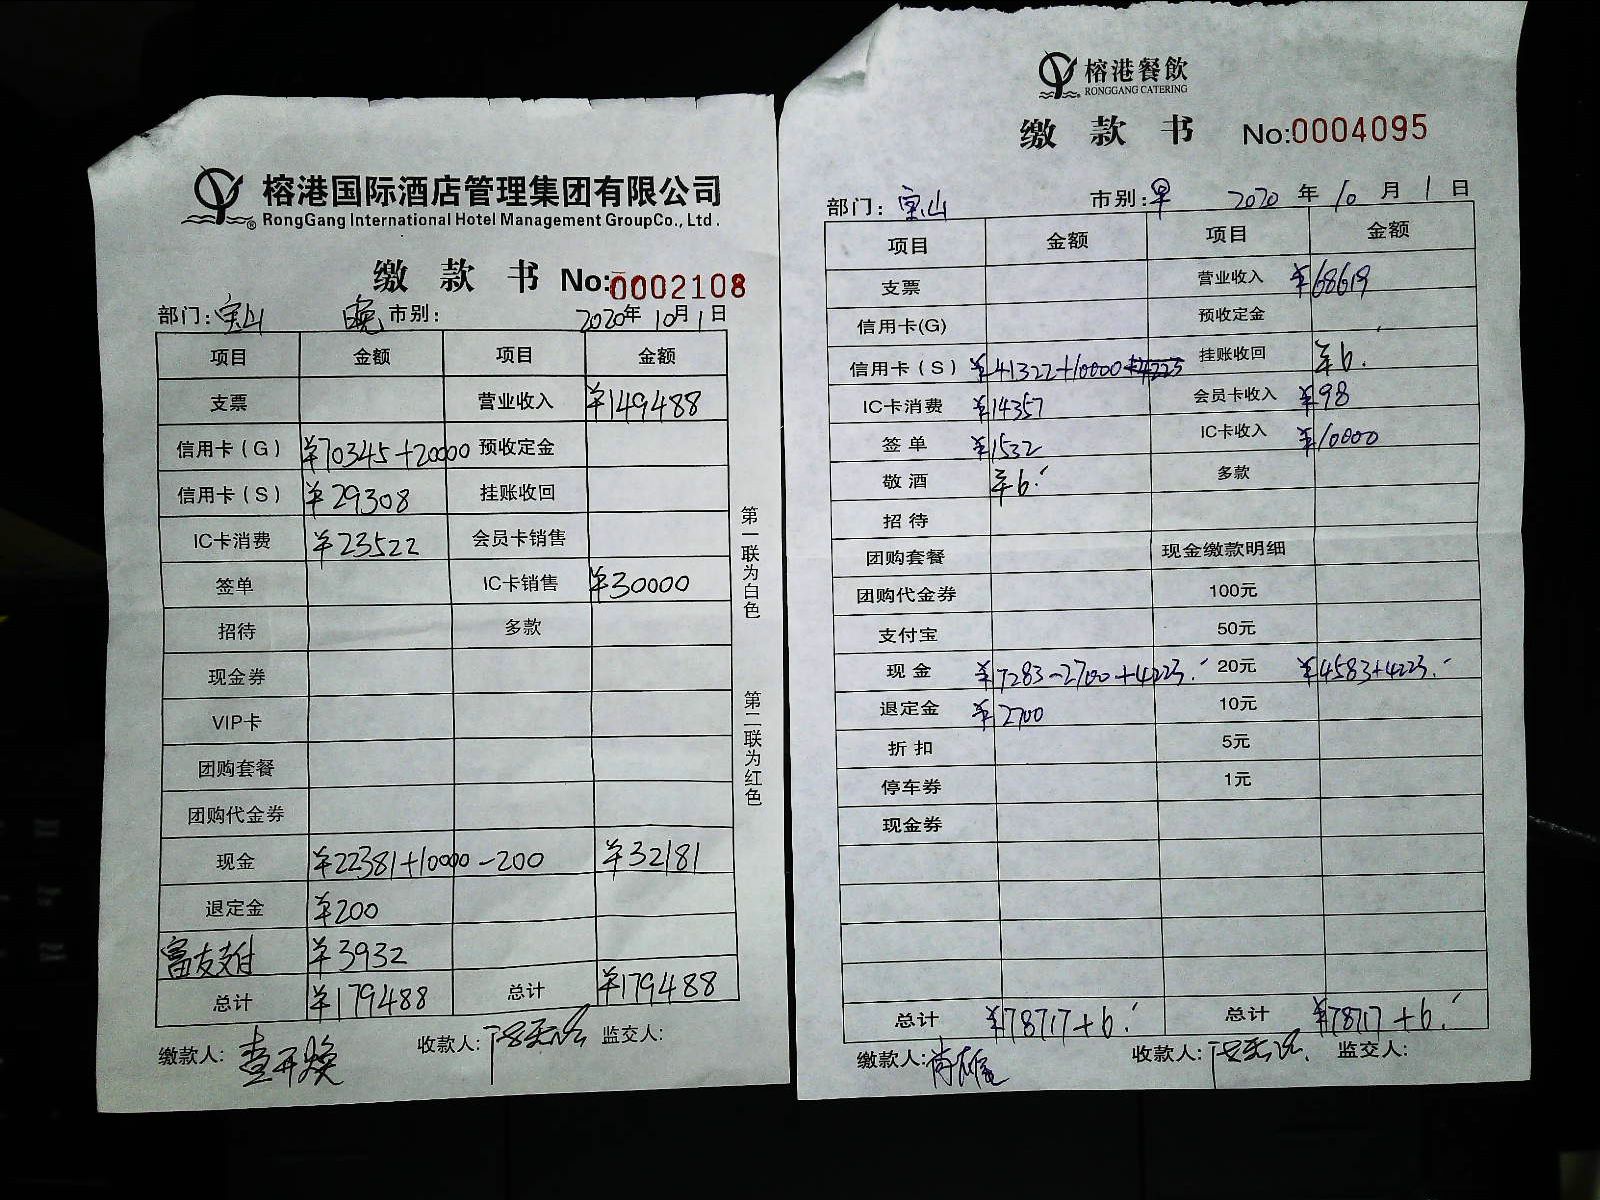 榕港国际酒店管理集团有限公司
RongGang International Hotel Management GroupCo., Ltd.
缴 款 书 No:0002108
部门:宝山 晚市别: 2020年10月1日
项目 金额 项目 金额
支票 营业收入 ¥149488
信用卡(G) ¥70345+20000 预收定金
信用卡(S) ¥29308 挂账收回
IC卡消费 ¥23522 会员卡销售
签单 IC卡销售 ¥30000
招待 多款
现金券
VIP卡
团购套餐
团购代金券
现金 ¥22381+10000-200 ¥32181
退定金 ¥200
富友支付 ¥3932
总计 ¥179488 总计 ¥179488
缴款人: 收款人: 监交人:
第一联为白色
第二联为红色
榕港餐飲
RONGGANG CATERING
缴 款 书 No:0004095
部门:宝山 市别:早 2020年10月1日
项目 金额 项目 金额
支票 营业收入 ¥68619
信用卡(G) 预收定金
信用卡(S) ¥41322+10000+4223 挂账收回 ¥6.
IC卡消费 ¥14357 会员卡收入 ¥98
签单 ¥1532 IC卡收入 ¥10000
敬酒 ¥6. 多款
招待
团购套餐 现金缴款明细
团购代金券 100元
支付宝 50元
现金 ¥7283-2700+4223. 20元 ¥4583+4223.
退定金 ¥2700 10元
折扣 5元
停车券 1元
现金券
总计 ¥78717+6. 总计 ¥78717+6.
缴款人: 收款人: 监交人: